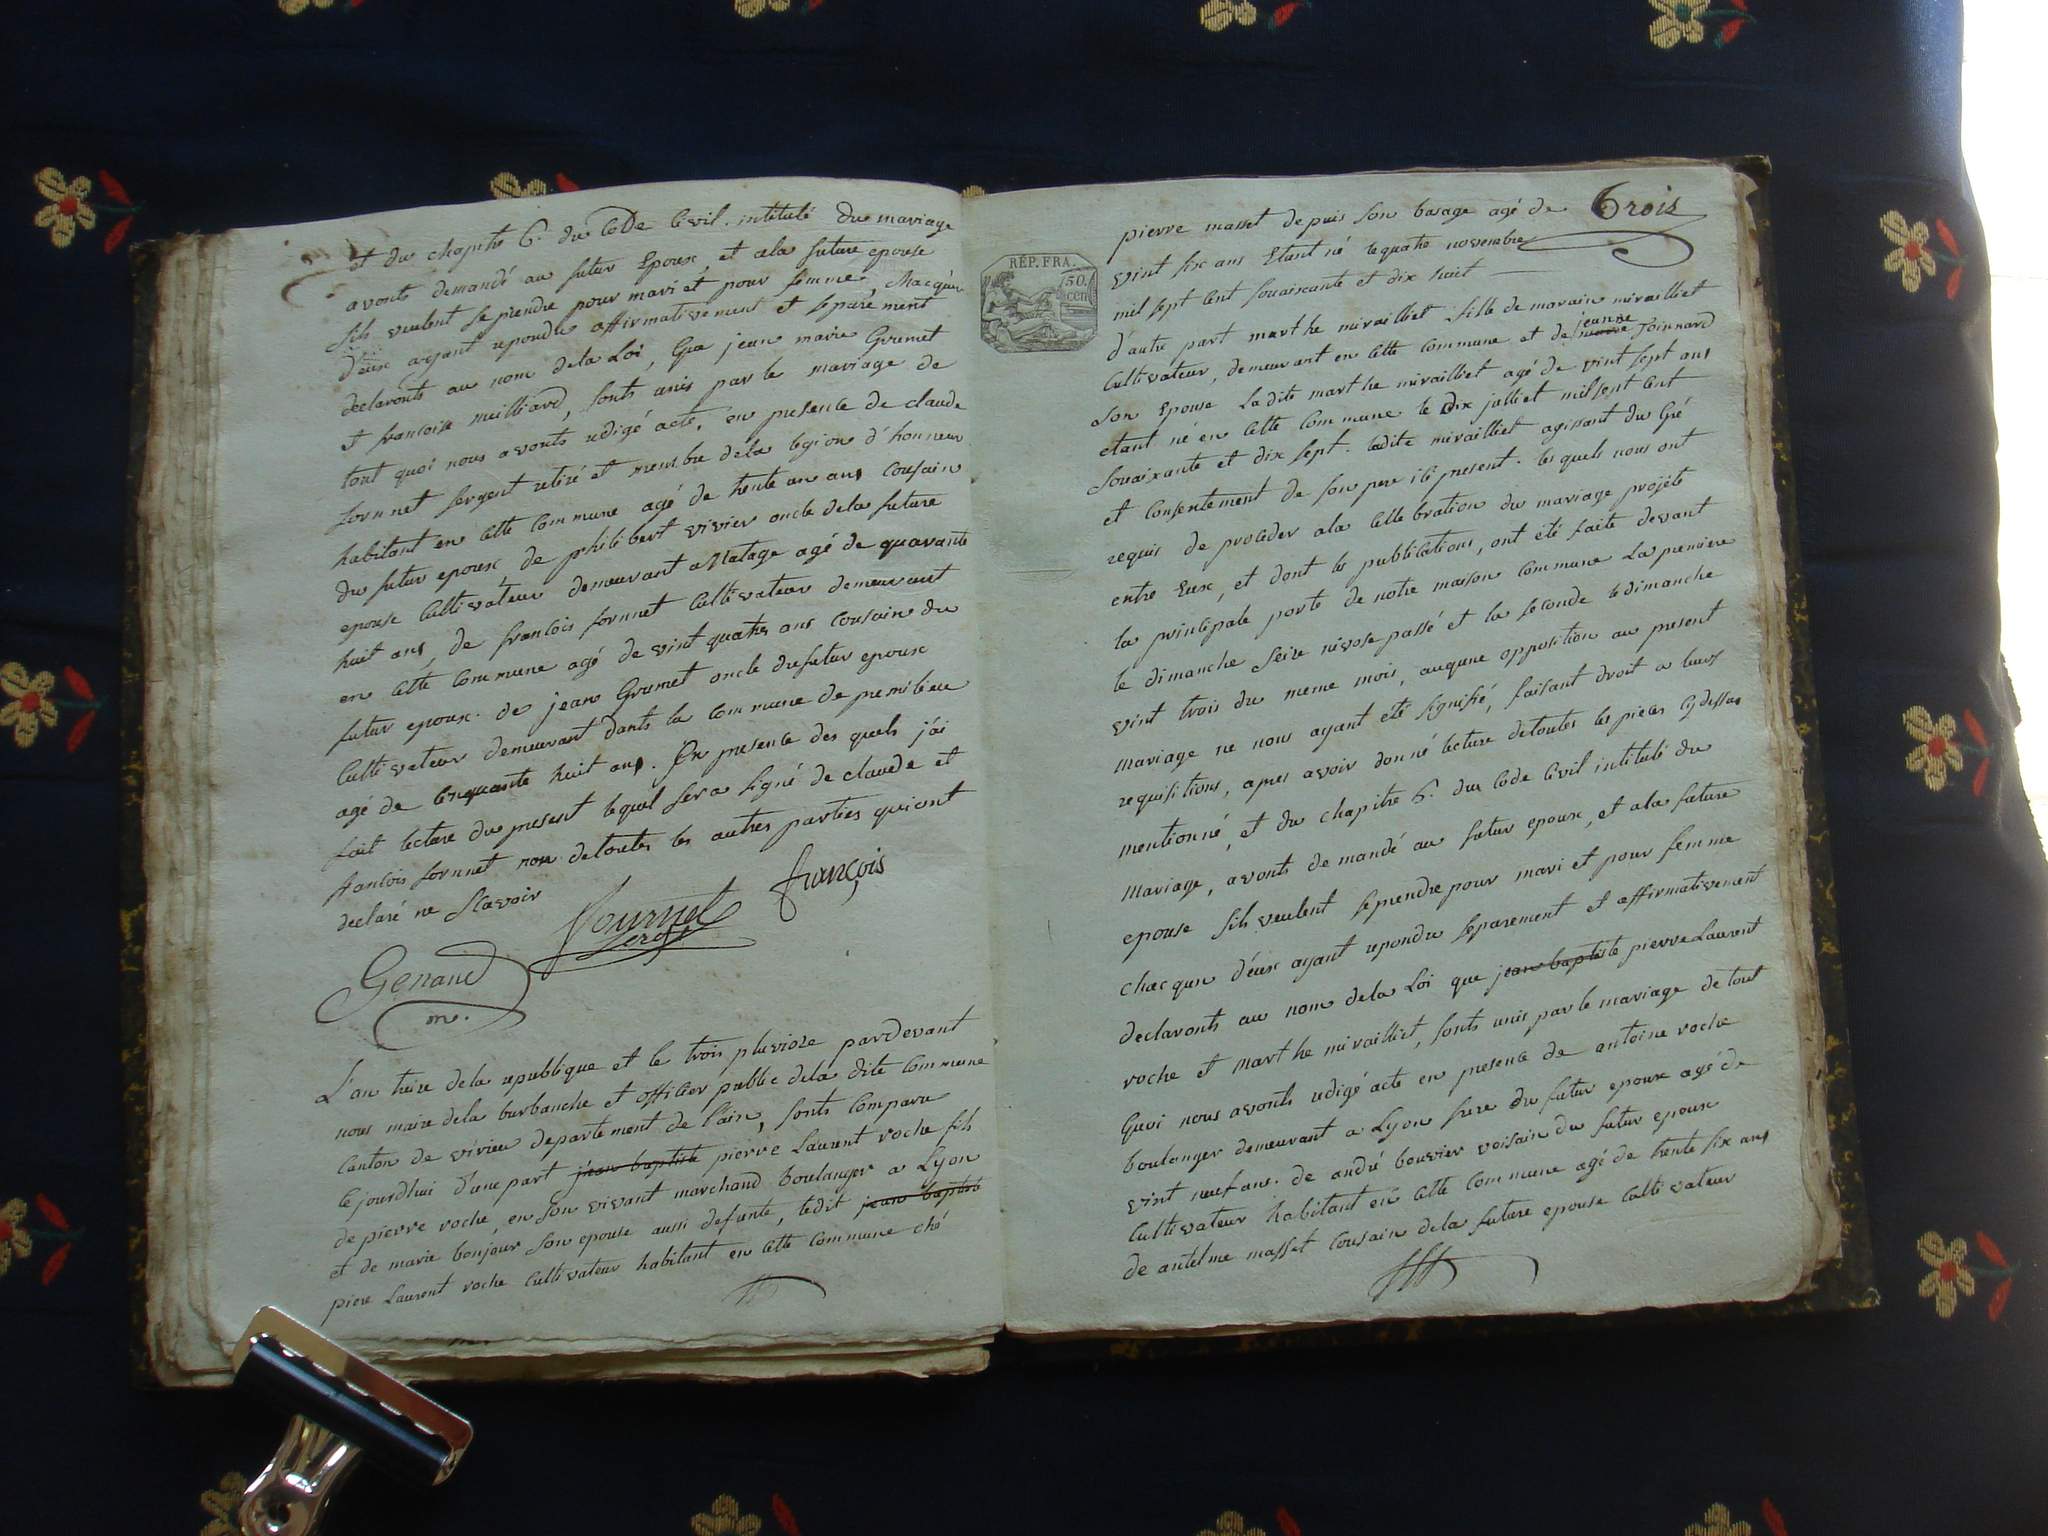 et du chapitre 6. du Code Civil. intitulé du mariage
avonts demandé au futur Epoux, et ala future epouse
sils veulent se prendre pour mari et pour femme, Macqun
d'eux ayant repondu affirmativement et separement
declaronts au nom dela Loi, Que jean marie Grumet
et francoise milliard, sonts unis par le mariage de
tout quoi nous avonts redigé acte, en presente de claude
fornnet sergent retiré et membre dela legion d'honneur
habitant en cette commune agé de trente un ans cousain
du futur epoux, de philibert vivier oncle dela future
epouse Cultivateur demeurant a Natage agé de quarante
huit ans, de francois fornnet Cultivateur demeurant
en cette commune agé de vint quatre ans cousain du
futur epoux. de jean Grumet oncle du futur epoux
Cultivateur demeurant dants la commune de premilieu
agé de cinquante huit ans. En presente des quels j'ai
fait lecture du present lequel sera signé de claude et
francois fornnet non detoutes les autres parties qui ont
declaré ne scavoir
fournet françois
Genand
m.
L'an treize dela republique et le trois pluvioze pardevant
nous maire dela burbanche et officier public dela dite commune
Canton de virieu departement de l'ain, sonts comparu
cejourdhui d'une part jean baptiste pierre Laurent roche fils
de pierre roche, en son vivant marchand Boulanger a Lyon
et de marie bonjour son epouse aussi defunte, ledit jean baptiste
piere Laurent roche Cultivateur habitant en cette commune ché
REP. FRA.
50.
cen
pierre masset depuis son basage agé de Trois
vint six ans Etant né le quatre novembre
mil sept cent souaixante et dix huit
d'autre part marthe mirailliet fille de marain mirailliet
Cultivateur, demeurant en cette commune et de jeanne Goinnard
son Epouse Ladite marthe mirailliet agé de vint sept ans
etant né en cette commune le dix julliet mil sept cent
souaixante et dix sept. ladite mirailliet agissant du Gré
et consentement de son pere ici present. les quels nous ont
requis de proceder ala cellebration du mariage projeté
entre Eux, et dont les publications, ont été faite devant
la principale porte de notre maison commune La premiere
le dimanche seize nivose passé et la seconde le dimanche
vint trois du meme mois, auqune opposition au present
mariage ne nous ayant eté signifié, faisant droit a leurs
requisitions, apres avoir donné lecture detoutes les pieces cy dessus
mentionné, et du chapitre 6. du Code Civil intitulé du
mariage, avonts demandé au futur epoux, et ala future
epouse sils veulent se prendre pour mari et pour femme
chacqun d'eux ayant repondu separement et affirmativement
declaronts au nom dela Loi que jean baptiste pierre Laurent
roche et marthe mirailliet, sonts unis par le mariage de tout
Quoi nous avonts redigé acte en presente de antoine roche
boulanger demeurant a Lyon frere du futur epoux agé de
vint neuf ans. de andré bouvier voisain du futur epoux
Cultivateur habitant en cette commune agé de trente six ans
de antelme masset cousain dela future epouse cultivateur